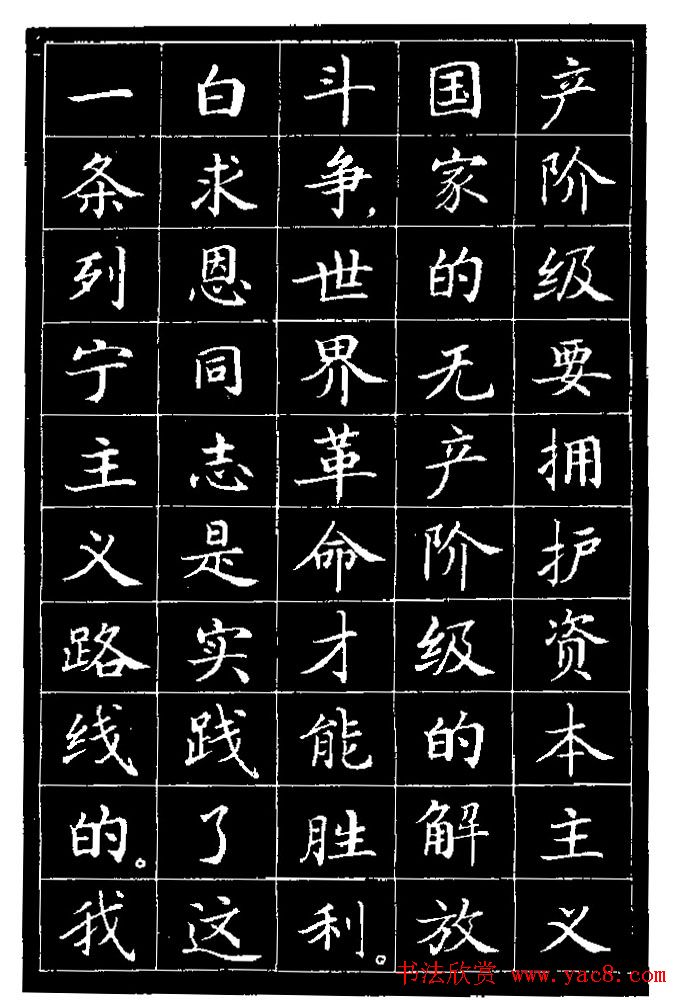 产阶级要拥护资本主义
国家的无产阶级的解放
斗争，世界革命才能胜利。
白求恩同志是实践了这
一条列宁主义路线的。我
书法欣赏 www.yac8.com